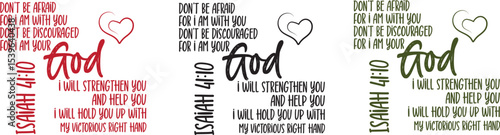 DON'T BE AFRAID
FOR I AM WITH YOU
DON'T BE DISCOURAGED
FOR I AM YOUR
God
ISAIAH 41:10
I WILL STRENGTHEN YOU
AND HELP YOU
I WILL HOLD YOU UP WITH
MY VICTORIOUS RIGHT HAND
DON'T BE AFRAID
FOR I AM WITH YOU
DON'T BE DISCOURAGED
FOR I AM YOUR
God
ISAIAH 41:10
I WILL STRENGTHEN YOU
AND HELP YOU
I WILL HOLD YOU UP WITH
MY VICTORIOUS RIGHT HAND
DON'T BE AFRAID
FOR I AM WITH YOU
DON'T BE DISCOURAGED
FOR I AM YOUR
God
ISAIAH 41:10
I WILL STRENGTHEN YOU
AND HELP YOU
I WILL HOLD YOU UP WITH
MY VICTORIOUS RIGHT HAND
Adobe Stock